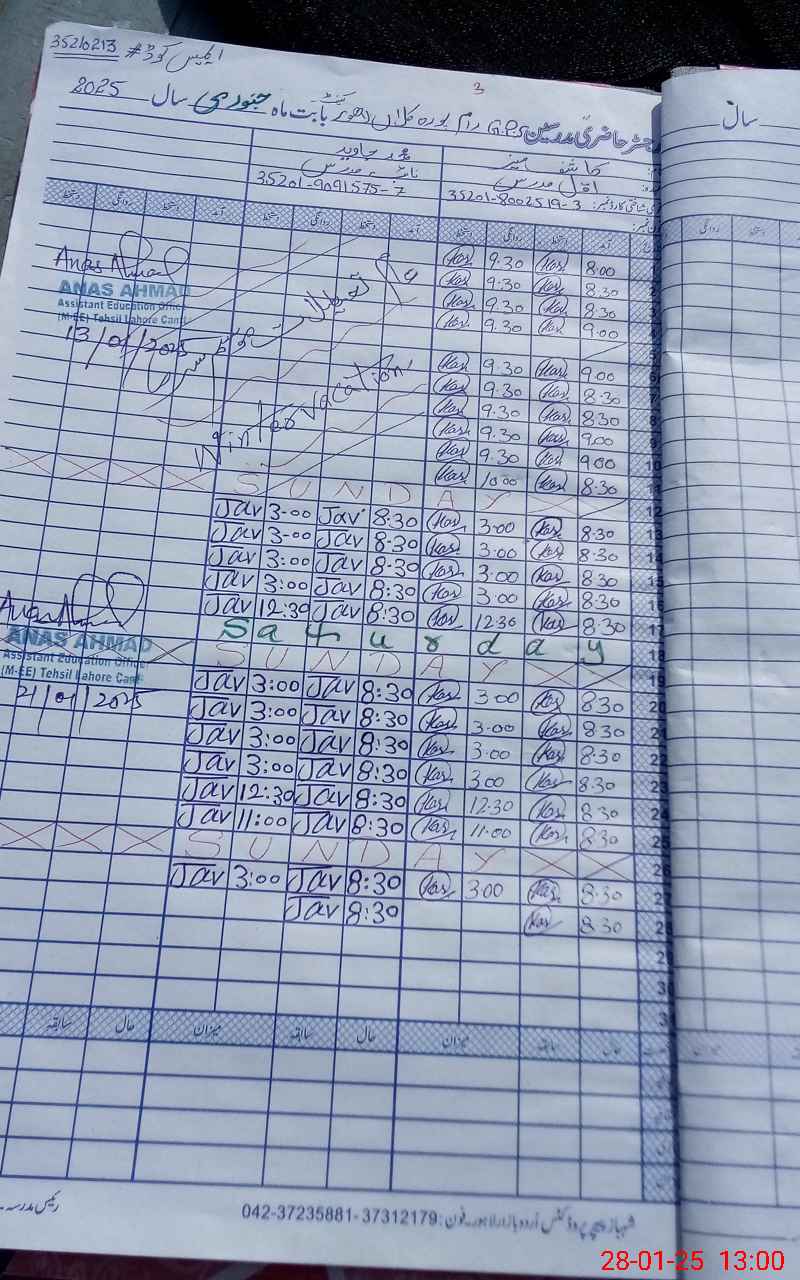 ایمیس کوڈ # 35210213
3
رجسٹر حاضری مدرسین GPS رام پورہ کلاں لاھور کینٹ بابت ماہ جنوری سال 2025
سال
کاشف منیر
محمد جاوید
اول مدرس
نائب مدرس
35201-8002519-3
35201-9091575-7
آمد دستخط روانگی دستخط آمد دستخط روانگی دستخط آمد دستخط روانگی دستخط
8.00 Kas 9.30 Kas
8.30 Kas 9.30 Kas
8.30 Kas 9.30 Kas
9.00 Kas 9.30 Kas
9.00 Kas 9.30 Kas
8.30 Kas 9.30 Kas
8.30 Kas 9.30 Kas
9.00 Kas 9.30 Kas
9.00 Kas 9.30 Kas
8.30 Kas 10.00 Kas
Winter vacation
Anas Ahmad
ANAS AHMAD
Assistant Education Officer
(M-EE) Tehsil Lahore Cantt
13/01/2025
SUNDAY
Jav 3-00 Jav 8.30 Kas 3.00 Kas 8.30 13
Jav 3-00 Jav 8.30 Kas 3.00 Kas 8.30 14
Jav 3:00 Jav 8:30 Kas 3.00 Kas 8.30 15
Jav 3:00 Jav 8:30 Kas 3.00 Kas 8.30 16
Jav 12:30 Jav 8:30 Kas 12.30 Kas 8.30 17
Saturday 18
SUNDAY 19
Anas Ahmad
ANAS AHMAD
Assistant Education Officer
(M-EE) Tehsil Lahore Cantt
21/01/2025
Jav 3:00 Jav 8:30 Kas 3.00 Kas 8.30 20
Jav 3:00 Jav 8:30 Kas 3.00 Kas 8.30 21
Jav 3:00 Jav 8:30 Kas 3.00 Kas 8.30 22
Jav 3:00 Jav 8:30 Kas 3.00 Kas 8.30 23
Jav 12:30 Jav 8:30 Kas 12.30 Kas 8.30 24
Jav 11:00 Jav 8:30 Kas 11.00 Kas 8.30 25
SUNDAY 26
Jav 3:00 Jav 8:30 Kas 3.00 Kas 8.30 27
Jav 8:30 Kas 8.30 28
حال سابقہ میزان حال سابقہ میزان حال سابقہ
شہباز پیپر پروڈکٹس اُردو بازار لاہور۔ فون: 042-37235881-37312179
رئیس مدرسہ
28-01-25 13:00